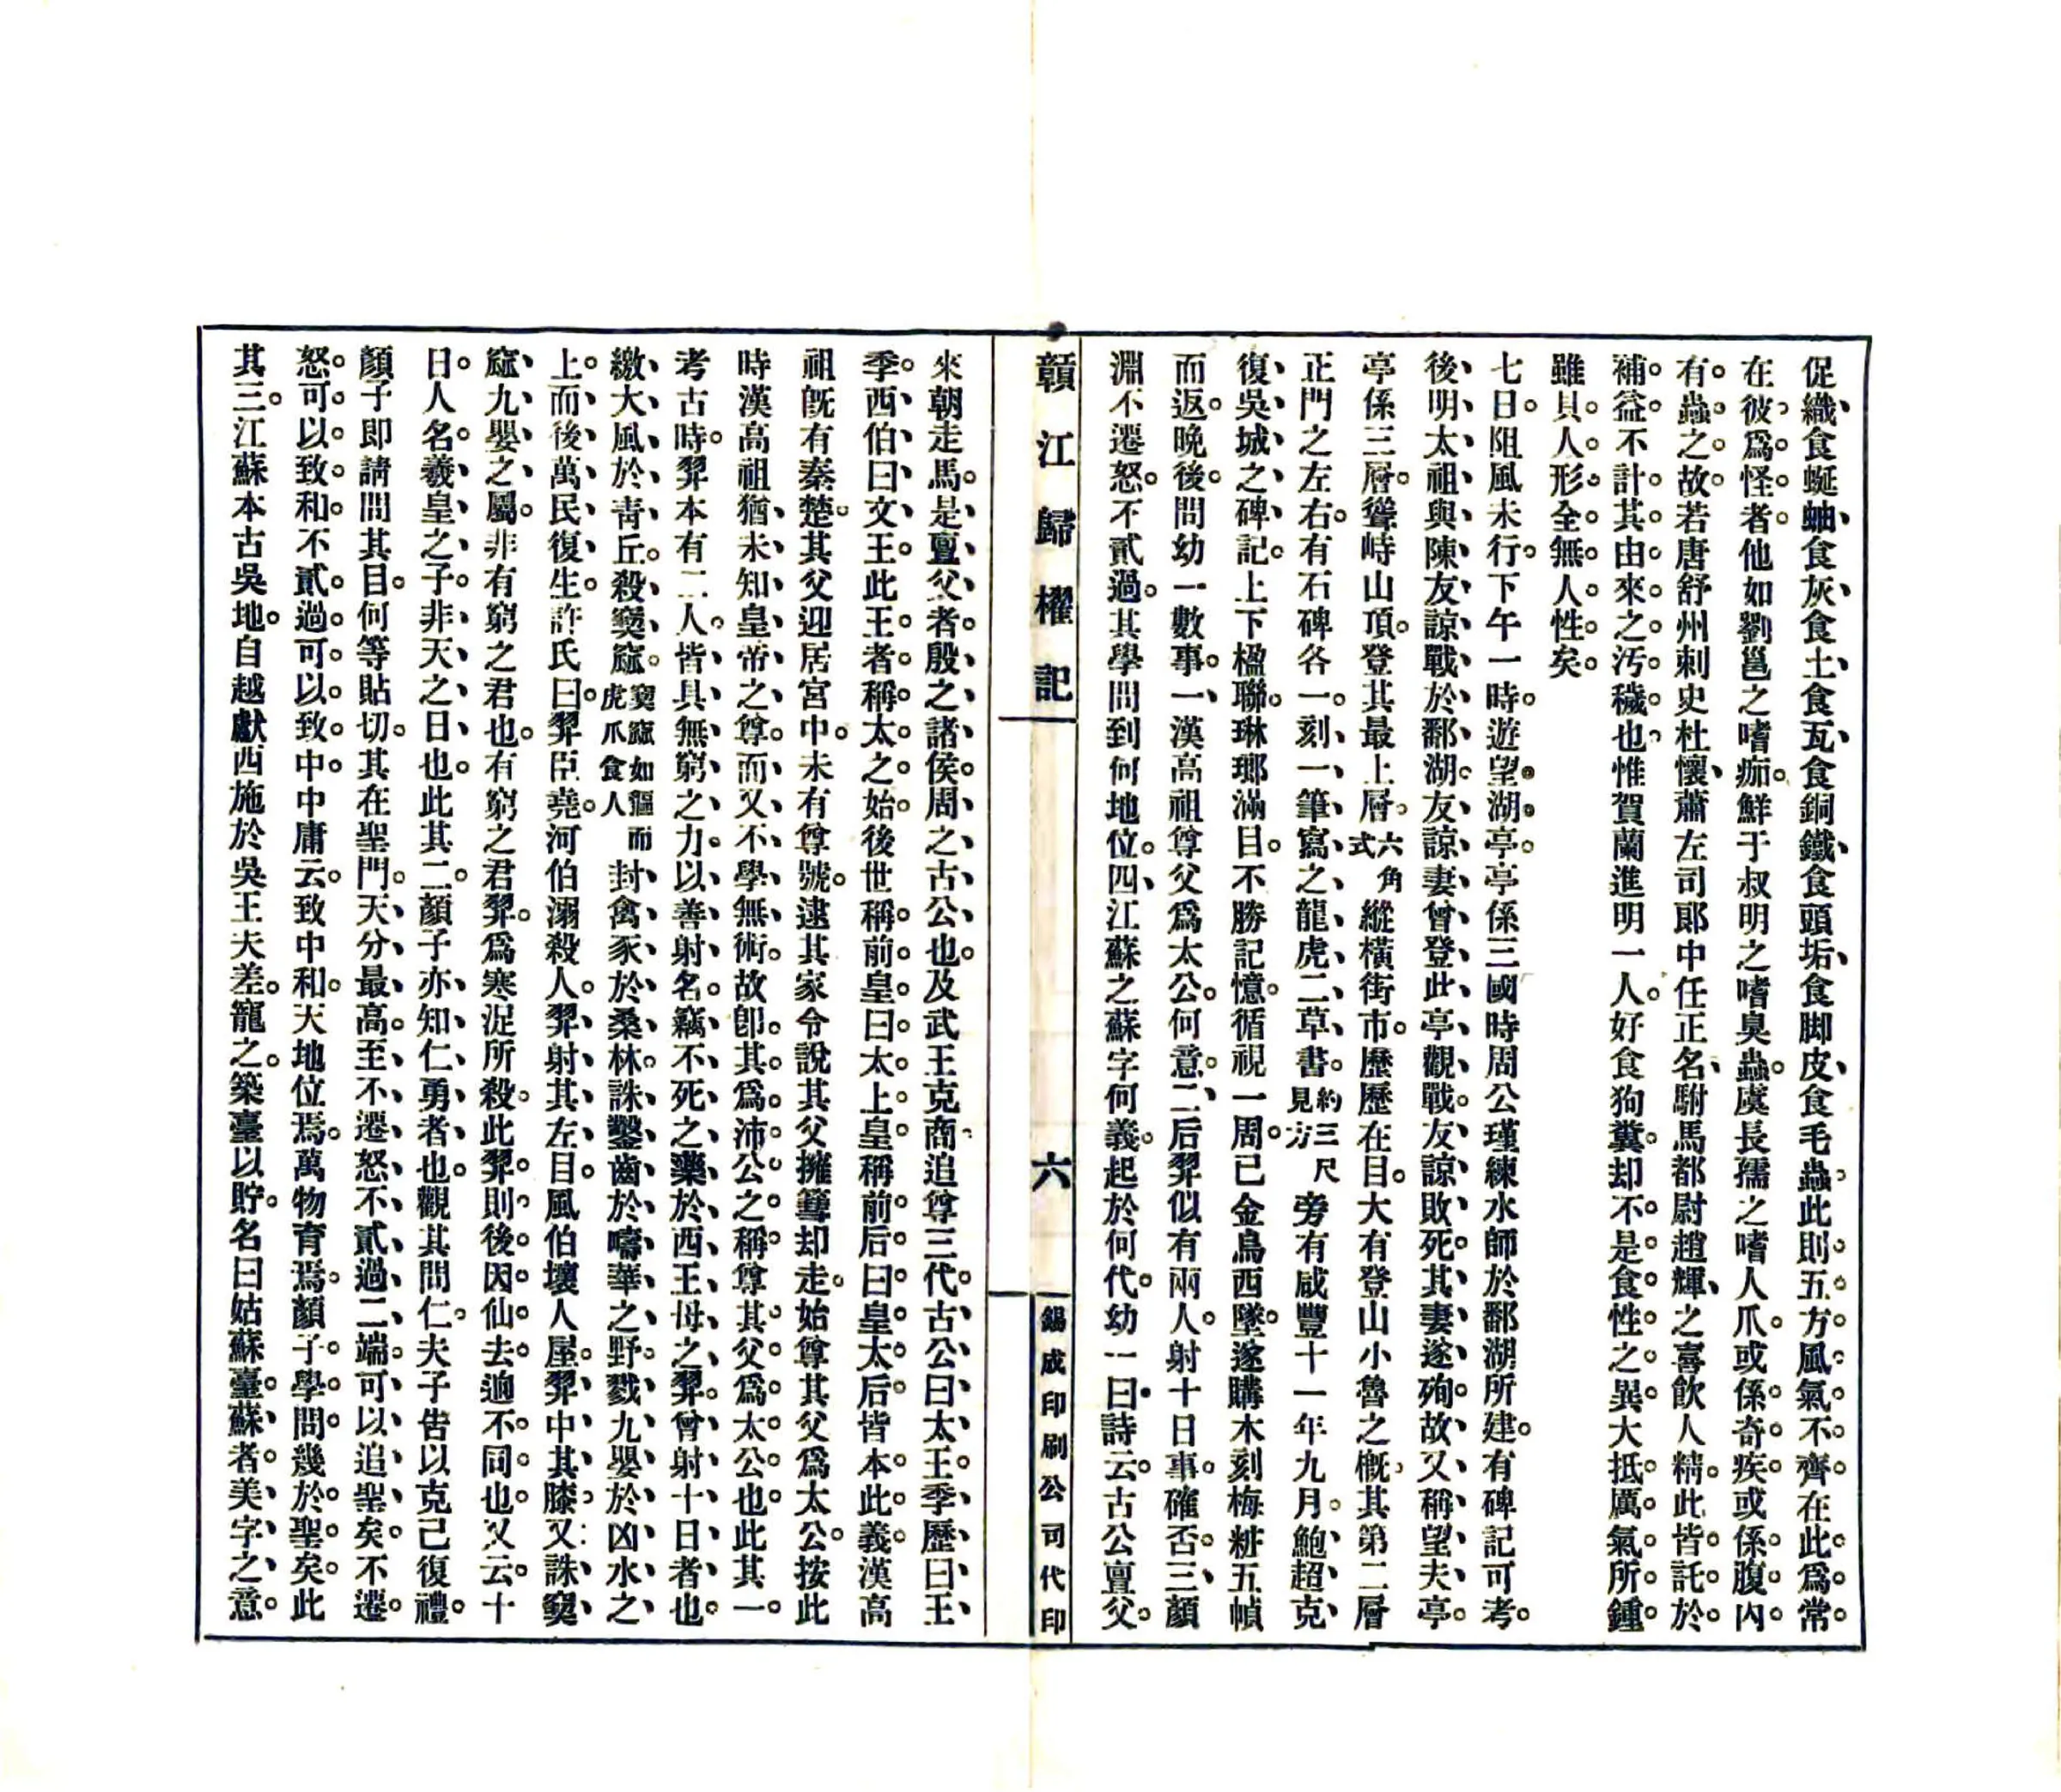 促織食蜒蚰食灰食土食瓦食銅鐵食頭垢食脚皮食毛蟲此則五方風氣不齊在此爲常
在彼爲怪者他如劉邕之嗜痂鮮于叔明之嗜臭蟲虞長孺之嗜人爪或係奇疾或係腹內
有蟲之故若唐舒州刺史杜懷蕭左司郎中任正名駙馬都尉趙輝之喜飲人精此皆託於
補益不計其由來之汚穢也惟賀蘭進明一人好食狗糞却不是食性之異大抵厲氣所鍾
雖具人形全無人性矣
七日阻風未行下午一時遊望湖亭亭係三國時周公瑾練水師於鄱湖所建有碑記可考
後明太祖與陳友諒戰於鄱湖友諒妻曾登此亭觀戰友諒敗死其妻遂殉故又稱望夫亭
亭係三層聳峙山頂登其最上層六角式縱橫街市歷歷在目大有登山小魯之概其第二層
正門之左右有石碑各一刻一筆寫之龍虎二草書約三尺見方旁有咸豐十一年九月鮑超克
復吳城之碑記上下楹聯琳瑯滿目不勝記憶循視一周已金烏西墜遂購木刻梅粧五幀
而返晚後問幼一數事一漢高祖尊父爲太公何意二后羿似有兩人射十日事確否三顏
淵不遷怒不貳過其學問到何地位四江蘇之蘇字何義起於何代幼一曰詩云古公亶父
贛江歸櫂記
六
錫成印刷公司代印
來朝走馬是亶父者殷之諸侯周之古公也及武王克商追尊三代古公曰太王季歷曰王
季西伯曰文王此王者稱太之始後世稱前皇曰太上皇稱前后曰皇太后皆本此義漢高
祖旣有秦楚其父迎居宮中未有尊號逮其家令說其父擁篲却走始尊其父爲太公按此
時漢高祖猶未知皇帝之尊而又不學無術故卽其爲沛公之稱尊其父爲太公也此其一
考古時羿本有二人皆具無窮之力以善射名竊不死之藥於西王母之羿曾射十日者也
繳大風於靑丘殺窫窳窫窳如貙而虎爪食人封禽豕於桑林誅鑿齒於疇華之野戮九嬰於凶水之
上而後萬民復生許氏曰羿臣堯河伯溺殺人羿射其左目風伯壞人屋羿中其膝又誅窫
窳九嬰之屬非有窮之君也有窮之君羿爲寒浞所殺此羿則後因仙去逈不同也又云十
日人名羲皇之子非天之日也此其二顏子亦知仁勇者也觀其問仁夫子告以克己復禮
顏子卽請問其目何等貼切其在聖門天分最高至不遷怒不貳過二端可以追聖矣不遷
怒可以致和不貳過可以致中中庸云致中和天地位焉萬物育焉顏子學問幾於聖矣此
其三江蘇本古吳地自越獻西施於吳王夫差寵之築臺以貯名曰姑蘇臺蘇者美字之意